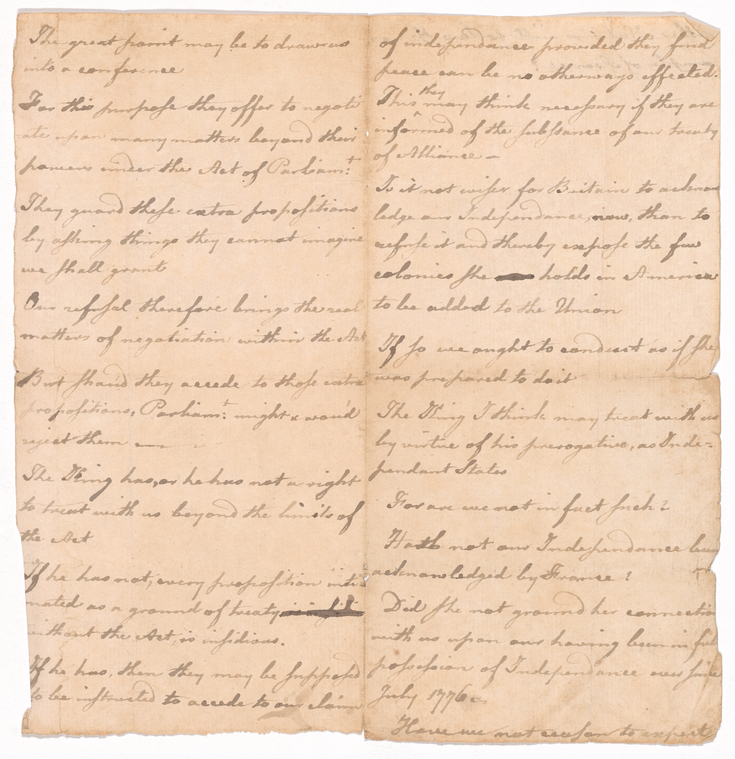 The great point may be to draw us
into a conference
For this purpose they offer to negoti
ate upon many matters beyond their
powers under the Act of Parliamt.
They guard these extra propositions
by asking things they cannot imagine
we shall grant
Our refusal therefore brings the real
matters of negotiation within the Act
But shaud they accede to those extra
propositions, Parliamt. might & wou'd
reject them
The King has, or he has not a right
to treat with us beyond the limits of
the Act
If he has not, every proposition inti
mated as a ground of treaty
without the Act, is insidious.
If he has, then they may be supposed
to be instructed to accede to our claim
of independance provided they find
peace can be no otherways effected.
This they may think necessary if they are
informed of the substance of our treaty
of Alliance –
Is it not wiser for Britain to acknow
ledge our Independance, now, than to
refuse it and thereby expose the few
colonies she holds in America
to be added to the Union
If so we ought to conduct as if she
was prepared to do it
The King I think may treat with us
by virtue of his prerogative, as Inde-
pendant States
For are we not in fact such?
Hath not our Independance been
acknowledged by France?
Did she not ground her connection
with us upon our having been in full
possession of Independance ever since
July 1776
Have we not reason to expect